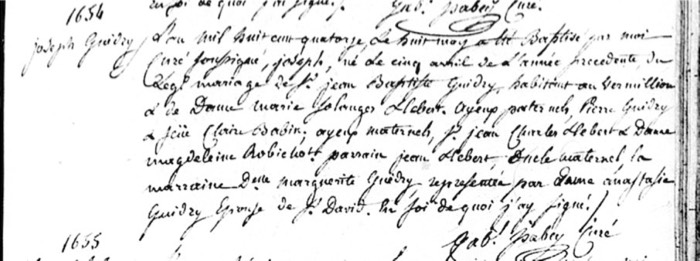 1654
en foi de quoi j'ai signé. Gab.l Isabey Curé.
joseph Guidry
L'an mil huit cent quatorze, Le huit may a été Baptisé par moi
Curé soussigné, joseph, né le cinq avril de L'année precedente, du
Leg.e mariage de S.r jean Baptiste Guidry habitant au vermillion
& de Dame marie Solanges Hebert. ayeux paternels, Pierre Guidry
& feüe Claire Babin; ayeux maternels, S.r jean Charles Hebert & Dame
magdeleine Robichot. parrain jean Hebert, Oncle maternel, la
marraine D.me marguerite Guidry representée par Dame anastasie
Guidry Epouse de S.r David. En foi de quoi j'ay signé.
Gab.l Isabey Curé
1655